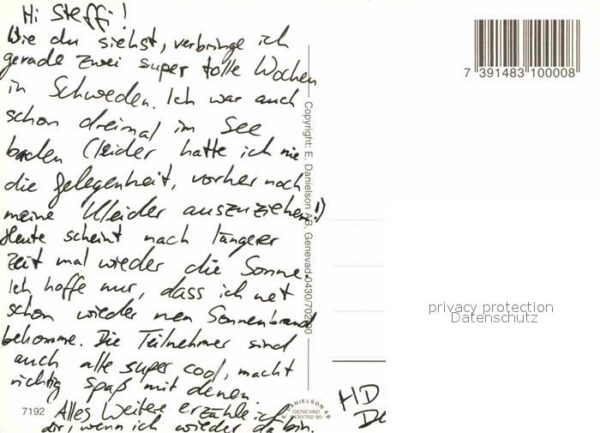 Hi Steffi!
Wie du siehst, verbringe ich
gerade zwei super tolle Wochen
in Schweden. Ich war auch
schon dreimal im See
baden (leider hatte ich nie
die Gelegenheit, vorher noch
meine Kleider auszuziehen!)
Heute scheint nach längerer
Zeit mal wieder die Sonne.
Ich hoffe nur, dass ich net
schon wieder nen Sonnenbrand
bekomme. Die Teilnehmer sind
auch alle super cool, macht
richtig Spaß mit denen.
Alles Weitere erzähle ich
dir, wenn ich wieder da bin.
HD
7192
Copyright: E. Danielson AB, Genevad 0430/702 90
E. DANIELSON AB
GENEVAD
0430/702 90
7 391483 100008
privacy protection
Datenschutz